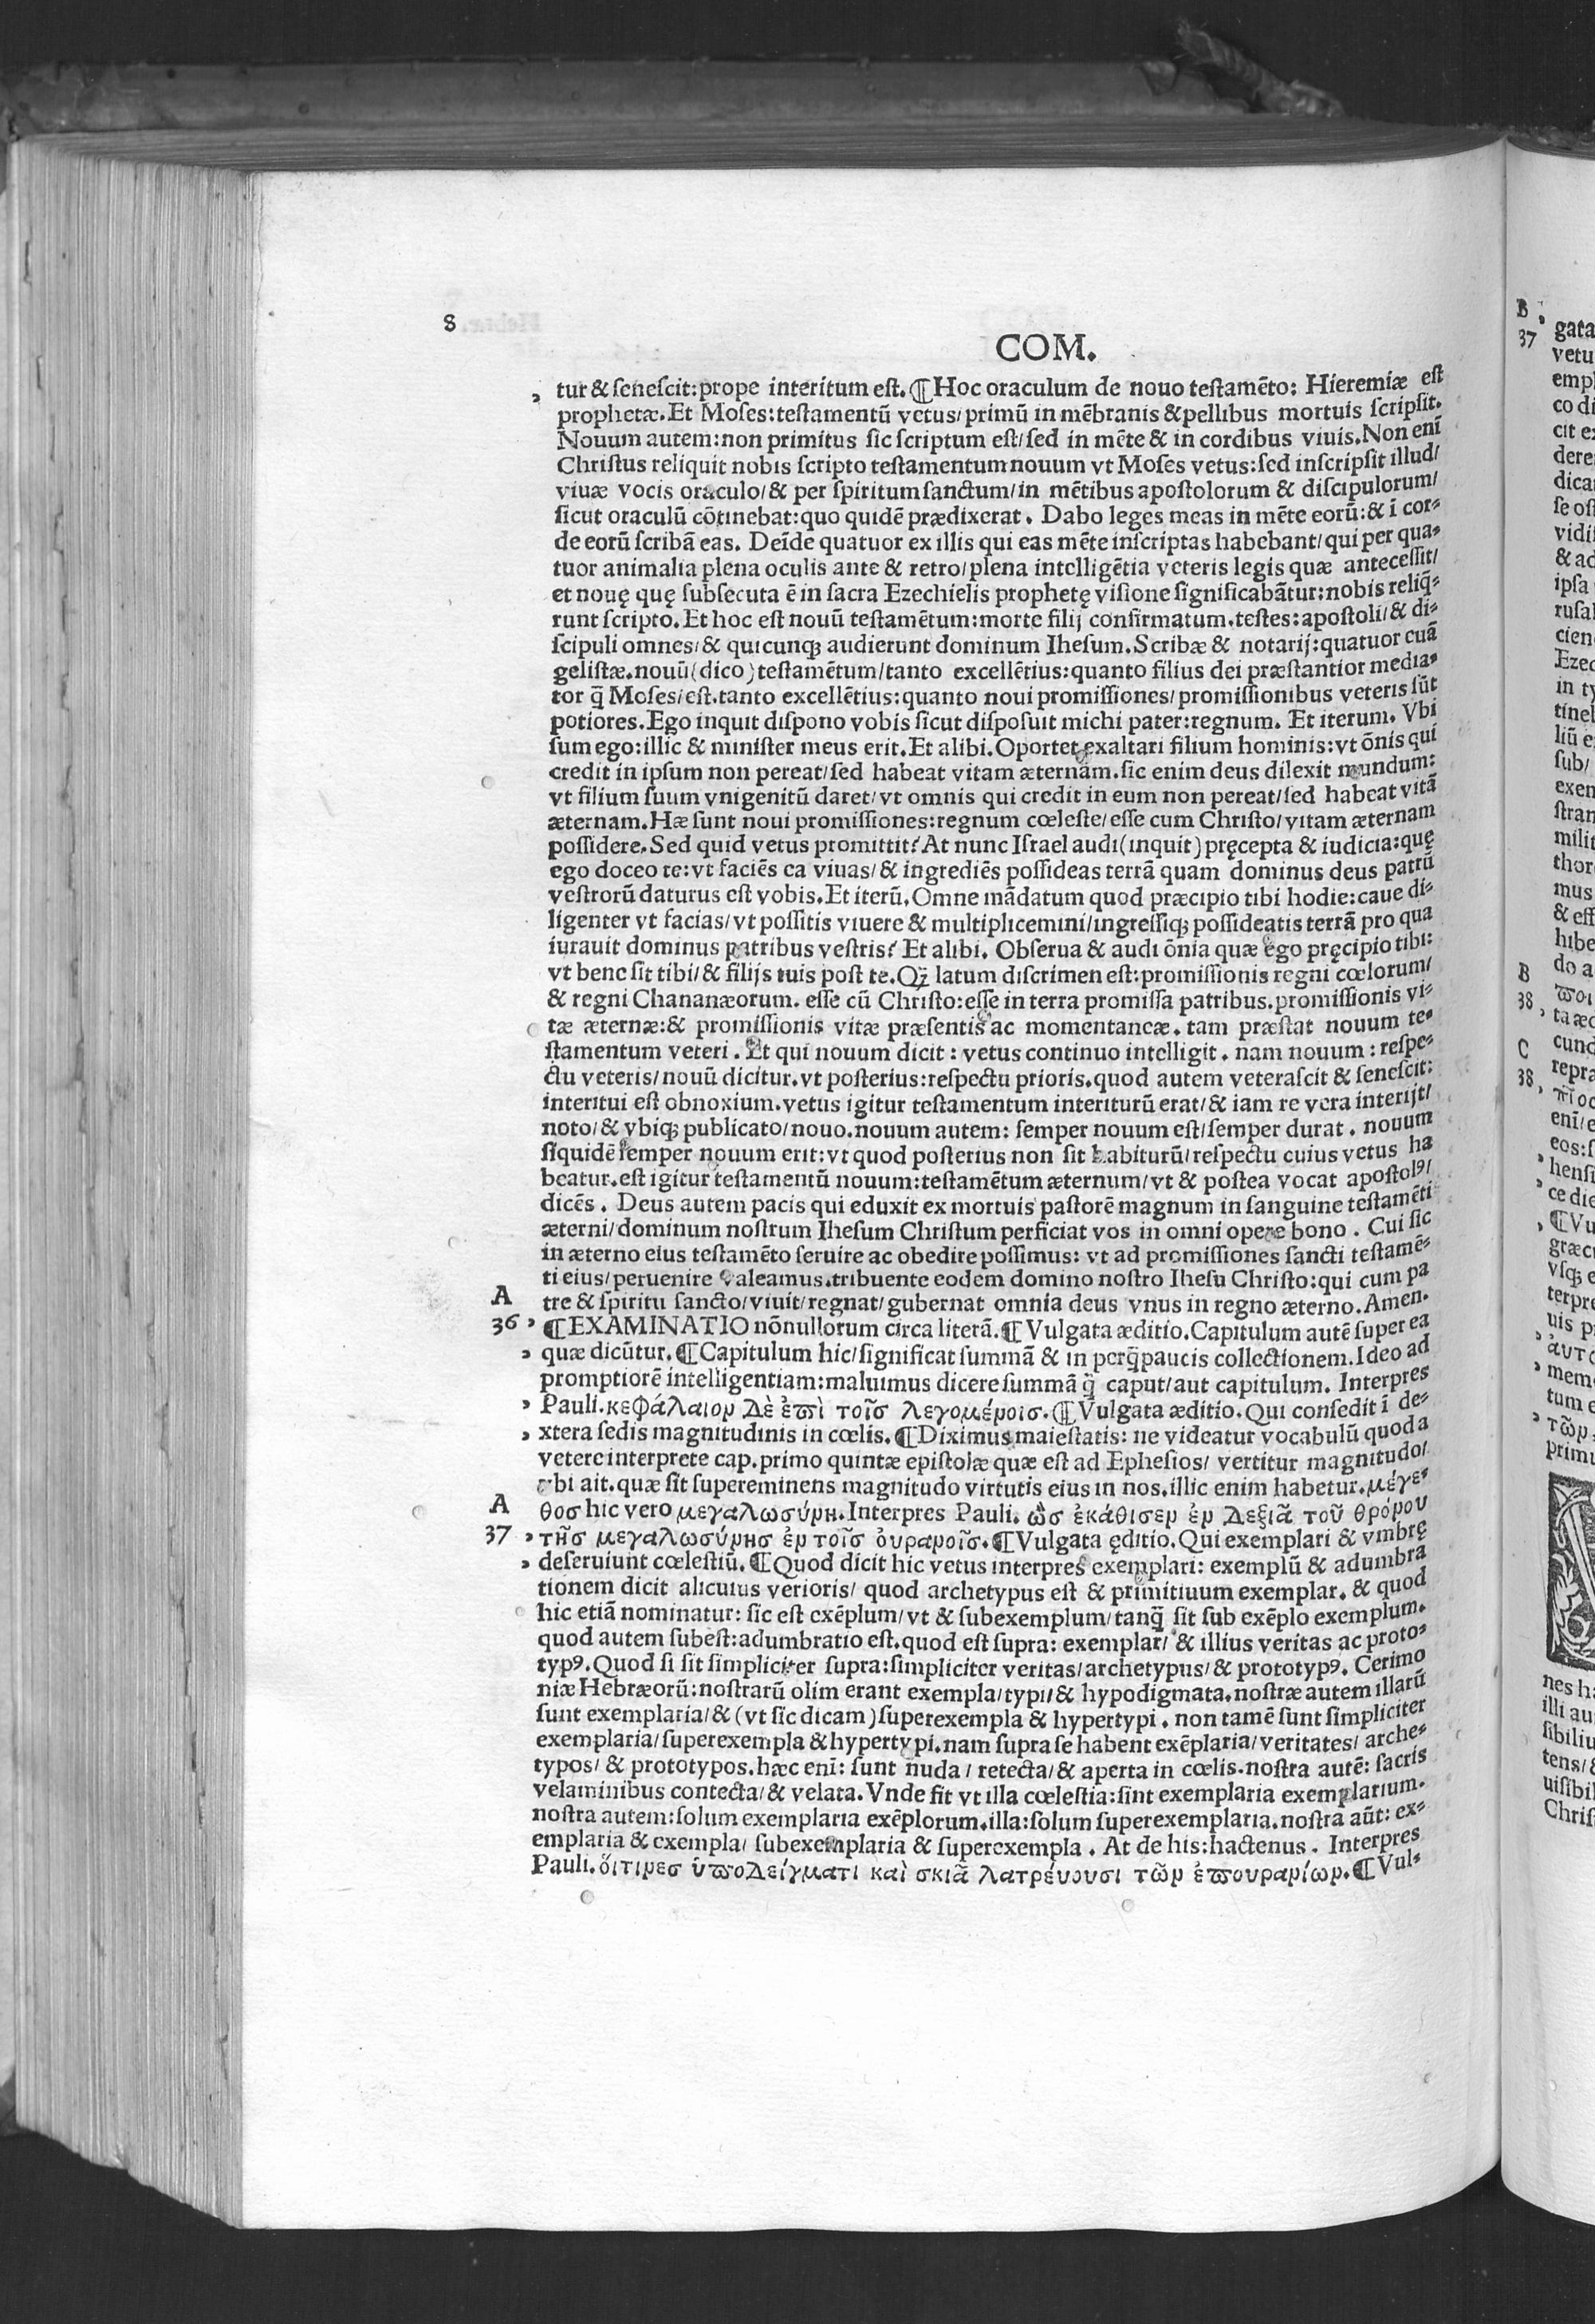 8
COM.
, tur & ſeneſcit: prope interitum eſt. ¶ Hoc oraculum de nouo teſtamẽto: Hieremiæ eſt
prophetæ. Et Moſes: teſtamentũ vetus/ primũ in mẽbranis & pellibus mortuis ſcripſit.
Nouum autem: non primitus ſic ſcriptum eſt/ ſed in mẽte & in cordibus viuis. Non enĩ
Chriſtus reliquit nobis ſcripto teſtamentum nouum vt Moſes vetus: ſed inſcripſit illud/
viuæ vocis oraculo/ & per ſpiritum ſanctum/ in mẽtibus apoſtolorum & diſcipulorum/
ſicut oraculũ cõtinebat: quo quidẽ prædixerat. Dabo leges meas in mẽte eorũ: & ĩ cor-
de eorũ ſcribã eas. Deĩde quatuor ex illis qui eas mẽte inſcriptas habebant/ qui per qua-
tuor animalia plena oculis ante & retro/ plena intelligẽtia veteris legis quæ anteceſſit/
et nouę quę ſubſecuta ẽ in ſacra Ezechielis prophetę viſione ſignificabãtur: nobis reliq̃-
runt ſcripto. Et hoc eſt nouũ teſtamẽtum: morte filij confirmatum. teſtes: apoſtoli/ & di-
ſcipuli omnes/ & quicunqꝫ audierunt dominum Iheſum. Scribæ & notarij: quatuor euã
geliſtæ. nouũ (dico) teſtamẽtum/ tanto excellẽtius: quanto filius dei præſtantior media-
tor q̃ Moſes/ eſt. tanto excellẽtius: quanto noui promiſſiones/ promiſſionibus veteris ſũt
potiores. Ego inquit diſpono vobis ſicut diſpoſuit michi pater: regnum. Et iterum. Vbi
ſum ego: illic & miniſter meus erit. Et alibi. Oportet exaltari filium hominis: vt õnis qui
credit in ipſum non pereat/ ſed habeat vitam æternam. ſic enim deus dilexit mundum:
vt filium ſuum vnigenitũ daret/ vt omnis qui credit in eum non pereat/ ſed habeat vitã
æternam. Hæ ſunt noui promiſſiones: regnum cœleſte/ eſſe cum Chriſto/ vitam æternam
poſſidere. Sed quid vetus promittit? At nunc Iſrael audi (inquit) pręcepta & iudicia: quę
ego doceo te: vt faciẽs ea viuas/ & ingrediẽs poſſideas terrã quam dominus deus patrũ
veſtrorũ daturus eſt vobis. Et iterũ. Omne mãdatum quod præcipio tibi hodie: caue di-
ligenter vt facias/ vt poſſitis viuere & multiplicemini/ ingreſſiqꝫ poſſideatis terrã pro qua
iurauit dominus patribus veſtris? Et alibi. Obſerua & audi õnia quæ ego pręcipio tibi:
vt bene ſit tibi/ & filijs tuis poſt te. Qꝫ latum diſcrimen eſt: promiſſionis regni cœlorum/
& regni Chananæorum. eſſe cũ Chriſto: eſſe in terra promiſſa patribus. promiſſionis vi-
tæ æternæ: & promiſſionis vitæ præſentis ac momentaneæ. tam præſtat nouum te-
ſtamentum veteri. Et qui nouum dicit: vetus continuo intelligit. nam nouum: reſpe-
ctu veteris/ nouũ dicitur. vt poſterius: reſpectu prioris. quod autem veteraſcit & ſeneſcit:
interitui eſt obnoxium. vetus igitur teſtamentum interiturũ erat/ & iam re vera interijt/
noto/ & vbiqꝫ publicato/ nouo. nouum autem: ſemper nouum eſt/ ſemper durat. nouum
ſiquidẽ ſemper nouum erit: vt quod poſterius non ſit habiturũ/ reſpectu cuius vetus ha
beatur. eſt igitur teſtamentũ nouum: teſtamẽtum æternum/ vt & poſtea vocat apoſtolꝰ/
dicẽs. Deus autem pacis qui eduxit ex mortuis paſtorẽ magnum in ſanguine teſtamẽti
æterni/ dominum noſtrum Iheſum Chriſtum perficiat vos in omni opere bono. Cui ſic
in æterno eius teſtamẽto ſeruire ac obedire poſſimus: vt ad promiſſiones ſancti teſtamẽ-
ti eius/ peruenire valeamus. tribuente eodem domino noſtro Iheſu Chriſto: qui cum pa
A tre & ſpiritu ſancto/ viuit/ regnat/ gubernat omnia deus vnus in regno æterno. Amen.
36 , ¶ EXAMINATIO nõnullorum circa literã. ¶ Vulgata æditio. Capitulum autẽ ſuper ea
, quæ dicũtur. ¶ Capitulum hic/ ſignificat ſummã & in perq̃paucis collectionem. Ideo ad
promptiorẽ intelligentiam: maluimus dicere ſummã q̃ caput/ aut capitulum. Interpres
, Pauli. κεφάλαιον δὲ ἐπὶ τοῖσ λεγομένοισ. ¶ Vulgata æditio. Qui conſedit ĩ de-
, xtera ſedis magnitudinis in cœlis. ¶ Diximus maieſtatis: ne videatur vocabulũ quoda
vetere interprete cap. primo quintæ epiſtolæ quæ eſt ad Epheſios/ vertitur magnitudo/
vbi ait. quæ ſit ſupereminens magnitudo virtutis eius in nos. illic enim habetur. μέγε-
A θοσ hic vero μεγαλωσύνη. Interpres Pauli. ὡσ ἐκάθισεν ἐν δεξιᾶ τοῦ θρόνου
37 , τῆσ μεγαλωσύνησ ἐν τοῖσ ὀυρανοῖσ. ¶ Vulgata ęditio. Qui exemplari & vmbrę
, deſeruiunt cœleſtiũ. ¶ Quod dicit hic vetus interpres exemplari: exemplũ & adumbra
tionem dicit alicuius verioris/ quod archetypus eſt & primitiuum exemplar. & quod
hic etiã nominatur: ſic eſt exẽplum/ vt & ſubexemplum/ tanq̃ ſit ſub exẽplo exemplum.
quod autem ſubeſt: adumbratio eſt. quod eſt ſupra: exemplar/ & illius veritas ac proto-
typꝰ. Quod ſi ſit ſimpliciter ſupra: ſimpliciter veritas/ archetypus/ & prototypꝰ. Cerimo
niæ Hebræorũ: noſtrarũ olim erant exempla/ typi/ & hypodigmata. noſtræ autem illarũ
ſunt exemplaria/ & (vt ſic dicam) ſuperexempla & hypertypi. non tamẽ ſunt ſimpliciter
exemplaria/ ſuperexempla & hypertypi. nam ſupra ſe habent exẽplaria/ veritates/ arche-
typos/ & prototypos. hæc enĩ: ſunt nuda/ retecta/ & aperta in cœlis. noſtra autẽ: ſacris
velaminibus contecta/ & velata. Vnde fit vt illa cœleſtia: ſint exemplaria exemplarium.
noſtra autem: ſolum exemplaria exẽplorum. illa: ſolum ſuperexemplaria. noſtra aũt: ex-
emplaria & exempla/ ſubexemplaria & ſuperexempla. At de his: hactenus. Interpres
Pauli. ὅιτινεσ ὑποδείγματι καὶ σκιᾶ λατρέυουσι τῶν ἐπουρανίων. ¶ Vul-
B
37 , gata
vetu
empl
co di
cit ex
dere
dica
ſe oſ
vidi
& ad
ipſa
ruſal
cien
Ezec
in ty
tinel
liũ e
ſub/
exem
ſtran
milit
thor
mus
& eff
hibe
B do a
38 ποι
, ta æc
C cund
38 repra
,
enĩ/ e
eos: ſ
, henſi
, ce die
, ¶ Vu
græc
vſqꝫ e
terpre
uis p
, ἀυτ
, mem
tum e
, τῶν
primu
nes h
illi au
ſibiliu
tens/
uiſibil
Chriſ